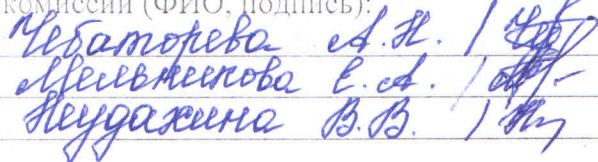 комиссии (ФИО, подпись):
Чебаторева А.Н. /
Мельникова Е.А. /
Неудахина В.В. /